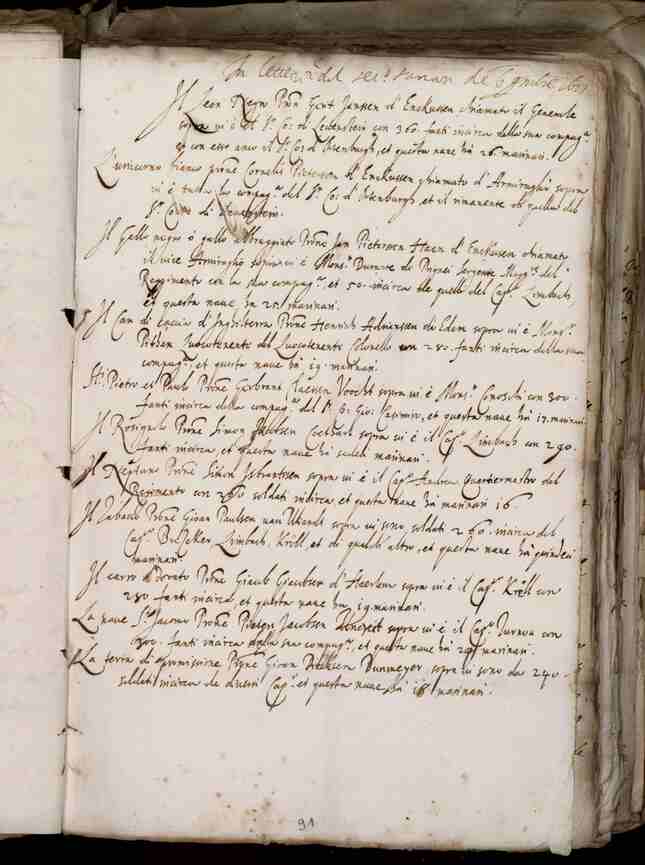 In lettera del sec.º Surian de 6 gmbre 1617
Il Leon Negro Prõn Gert Jansen d'Enckusen chiamato il Generale
sopra vi è il S.r Co: di Levenstein con 360. fanti incirca della sua compag.a
et con esso anco il S.r Co: d'Isenburgh, et questa nave hà 26. marinari.
L'unicorno bianco prone Cornelis Pieterssen d'Enckussen chiamato d'Armiraglio sopra
vi è tutta la compag.a del S.r Co: d'Isenburgh, et il rimanente di quella del
S.r Conte di Levenstein.
Il Gallo negro ò gallo Prone Jan Pietersen Haen d'Enckusen chiamato
il vice Armiraglio sopravi è Mons.r Durante de Sergente Magg.re del
Reggimento con la sua compag.a, et 50. incirca de quelli del Cap.o Limbach
et questa nave hà 25 marinari.
Il Can di caccia d'Inghilterra Prone Henrich Adriansen de Eden sopra vi è Mons.r
Pithan Luocotenente del Luocotenente Colonello con 280. fanti incirca della sua
compag.a, et questa nave hà 19. marinari.
S.ti Pietro et Paulo Prone Gerbrant Claessen Voocht sopra vi è Mons.r con 300.
fanti incirca della compag.a del S.r C. Gio: Casimiro, et questa nave hà 17. marinari
Il Rosignolo Prone Simon Jacobsen sopra vi è il Cap.o Limbach con 290.
fanti incirca et questa nave hà sedeci marinari.
Il Neptuno Prone Simon Isbrantssen sopra vi è il Cap.o Andrea Quartiermastro del
Regimento con 260 soldati incirca, et questa nave hà marinari 16.
Il Prone Giouan Paulsen uan sopra vi sono soldati 260. incirca del
Cap.o Limbach, Kröll, et di qualch' altro, et questa nave hà quindeci
marinari.
Il carro Dorato Prone Giacob Giacobsen d'Haerlem sopra vi è il Cap.o Kröll con
280 fanti incirca et questa nave hà 19 marinari.
La nave S.to Jacomo Prone Pieter Jacobsen sopra vi è il Cap.o con
300. fanti incirca della sua compag.a, et questa nave hà 20 marinari.
La terra di promissione Prone Giouan Diricksen Dunmeyer sopra vi sono da 240.
soldati incirca de diversi Cap.i et questa nave hà 16 marinari.
91